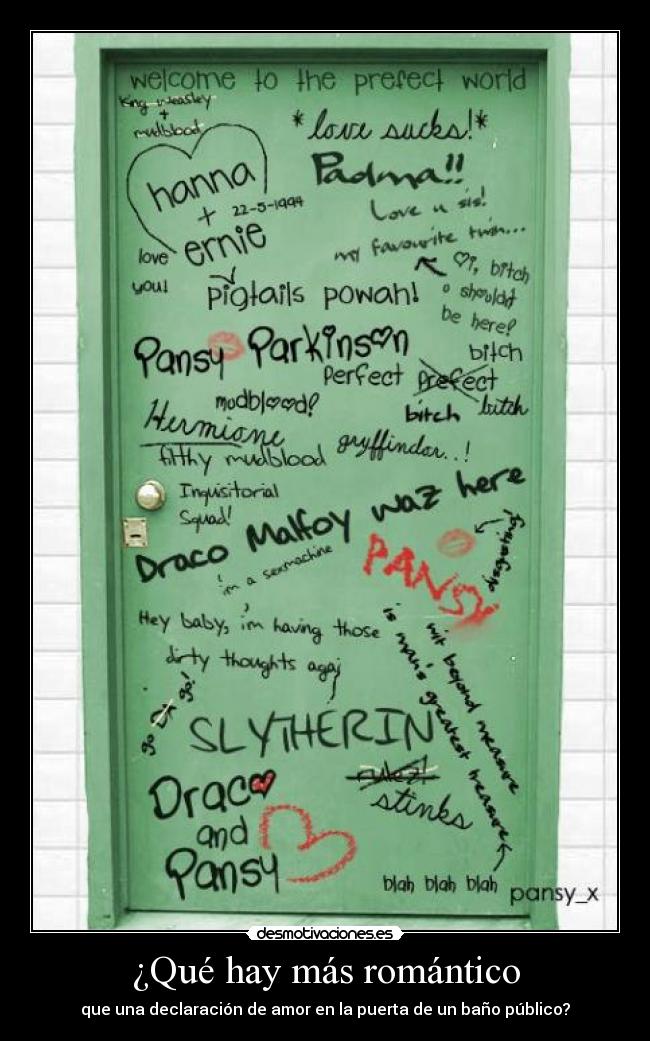 welcome to the prefect world
King Weasley
+
mudblood
*love sucks!*
Padma!!
Love u sis!
my favourite twin...
hanna
+ 22-5-1994
ernie
love
you!
♡i, bitch
u shouldnt
be here?
pigtails powah!
Pansy Parkinson
bitch
Perfect prefect
bitch bitch
mudblood?
Hermione
filthy mudblood
gryffindor..!
Inquisitorial
Squad!
Draco Malfoy waz here
i'm a sexmachine
PANSY
Hey baby, i'm having those
dirty thoughts agai
wit beyond measure
is man's greatest treasure
go go!
SLYTHERIN
rulez!
stinks
Draco
and
Pansy
blah blah blah
pansy_x
desmotivaciones.es
¿Qué hay más romántico
que una declaración de amor en la puerta de un baño público?